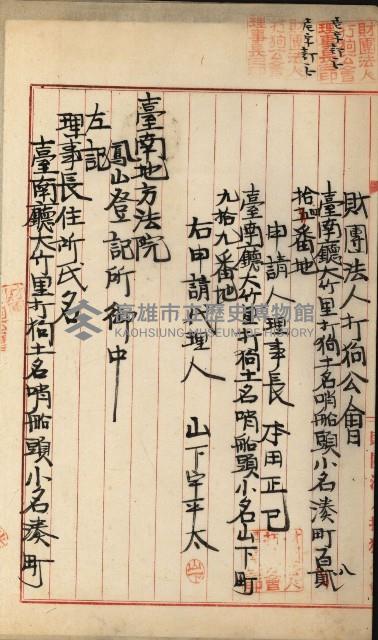 壱字訂正
壱字訂正
財團法人打狗公會理事長印
財團法人打狗公會
臺南廳大竹里打狗土名哨船頭小名湊町百貳
拾四番地
申請人理事長 本田正已
臺南廳大竹里打狗土名哨船頭小名山下町八
九拾九番地
右申請代理人 山下宇平太
臺南地方法院
鳳山登記所御中
左記
理事長住所氏名
臺南廳大竹里打狗土名哨船頭小名湊町
高雄市立歷史博物館
KAOHSIUNG MUSEUM OF HISTORY